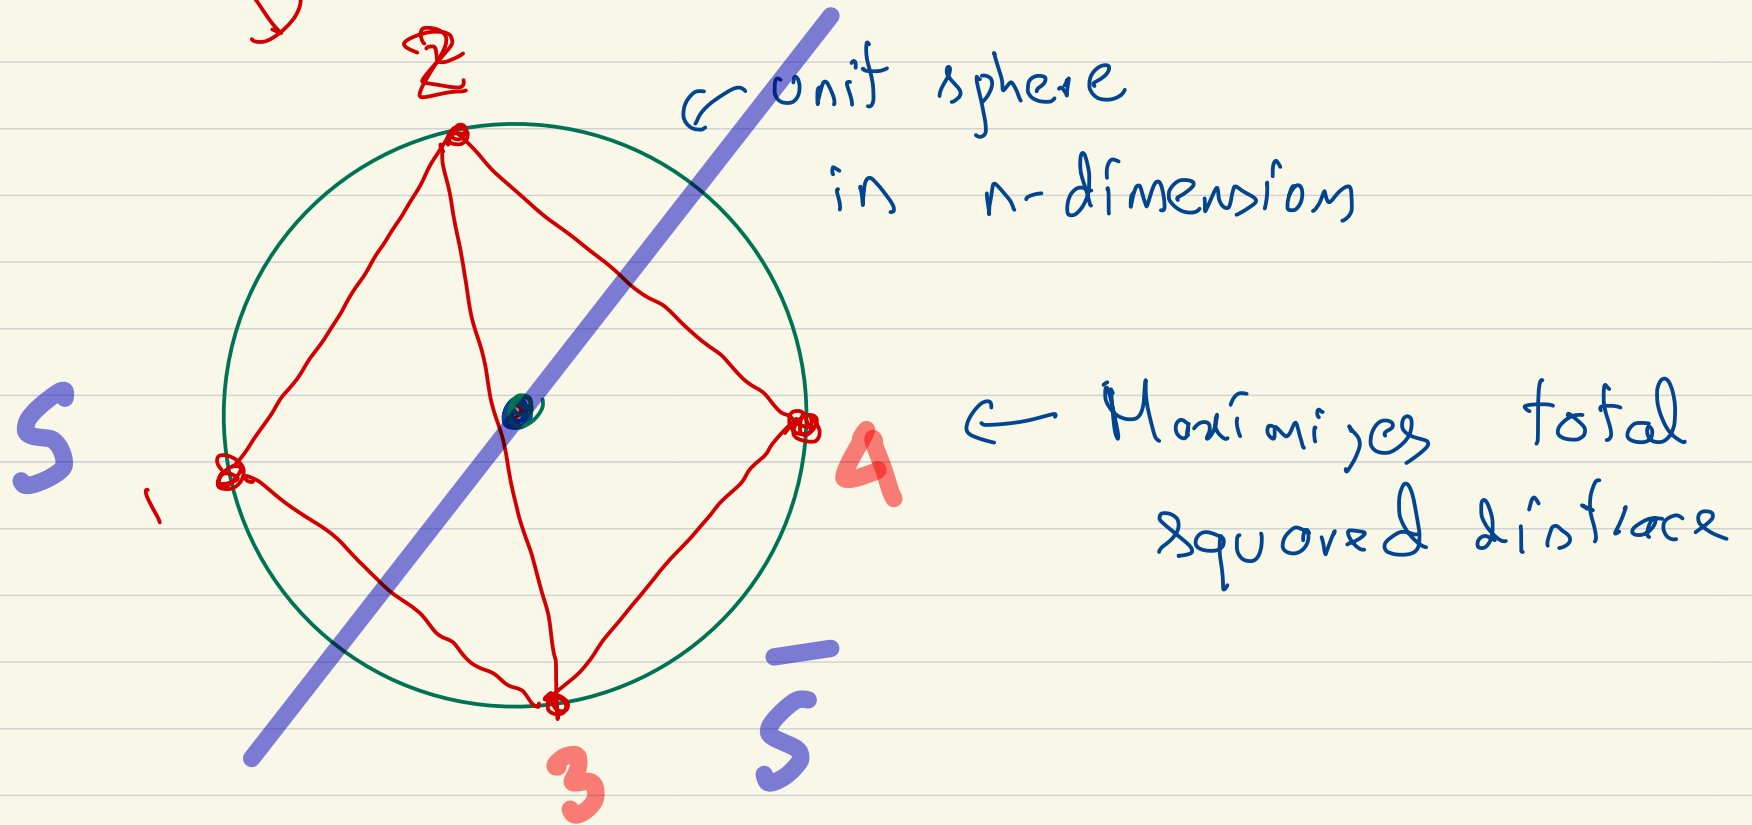 2
unit sphere
in n-dimension
S
1
4
Maximizes total
squared distance
3
S̅